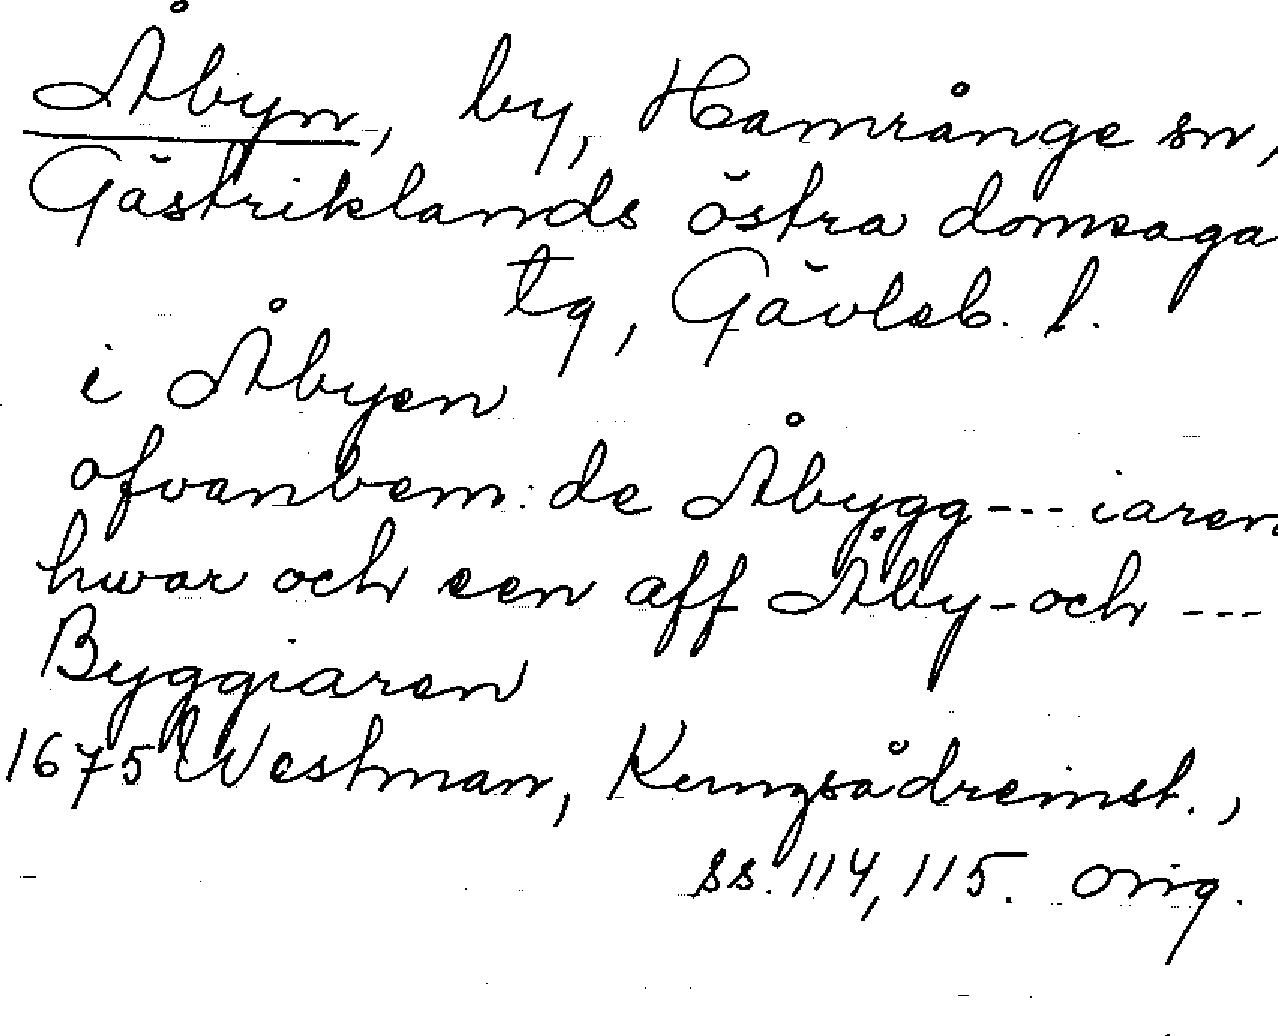 Åbyn, by, Hamrånge sn,
Gästriklands östra domsaga
tg, Gävleb. l.
i Åbyen
ofvanbem:de Åbygg--- iaren
hwar och een aff Åby-och ---
Byggiaren
1675 Westman, Kungsådreinst.,
ss. 114, 115. orig.